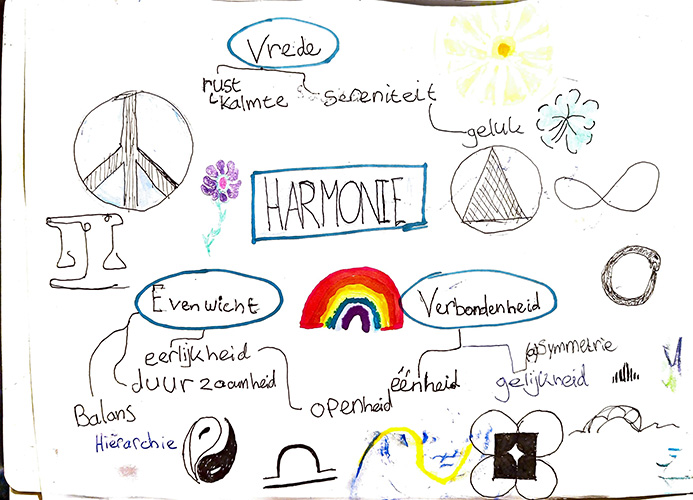 Vrede
rust
Kalmte
Sereniteit
geluk
HARMONIE
Evenwicht
Verbondenheid
eerlijkheid
(a)Symmetrie
duurzaamheid
éénheid
gelijkheid
openheid
Balans
Hiërarchie